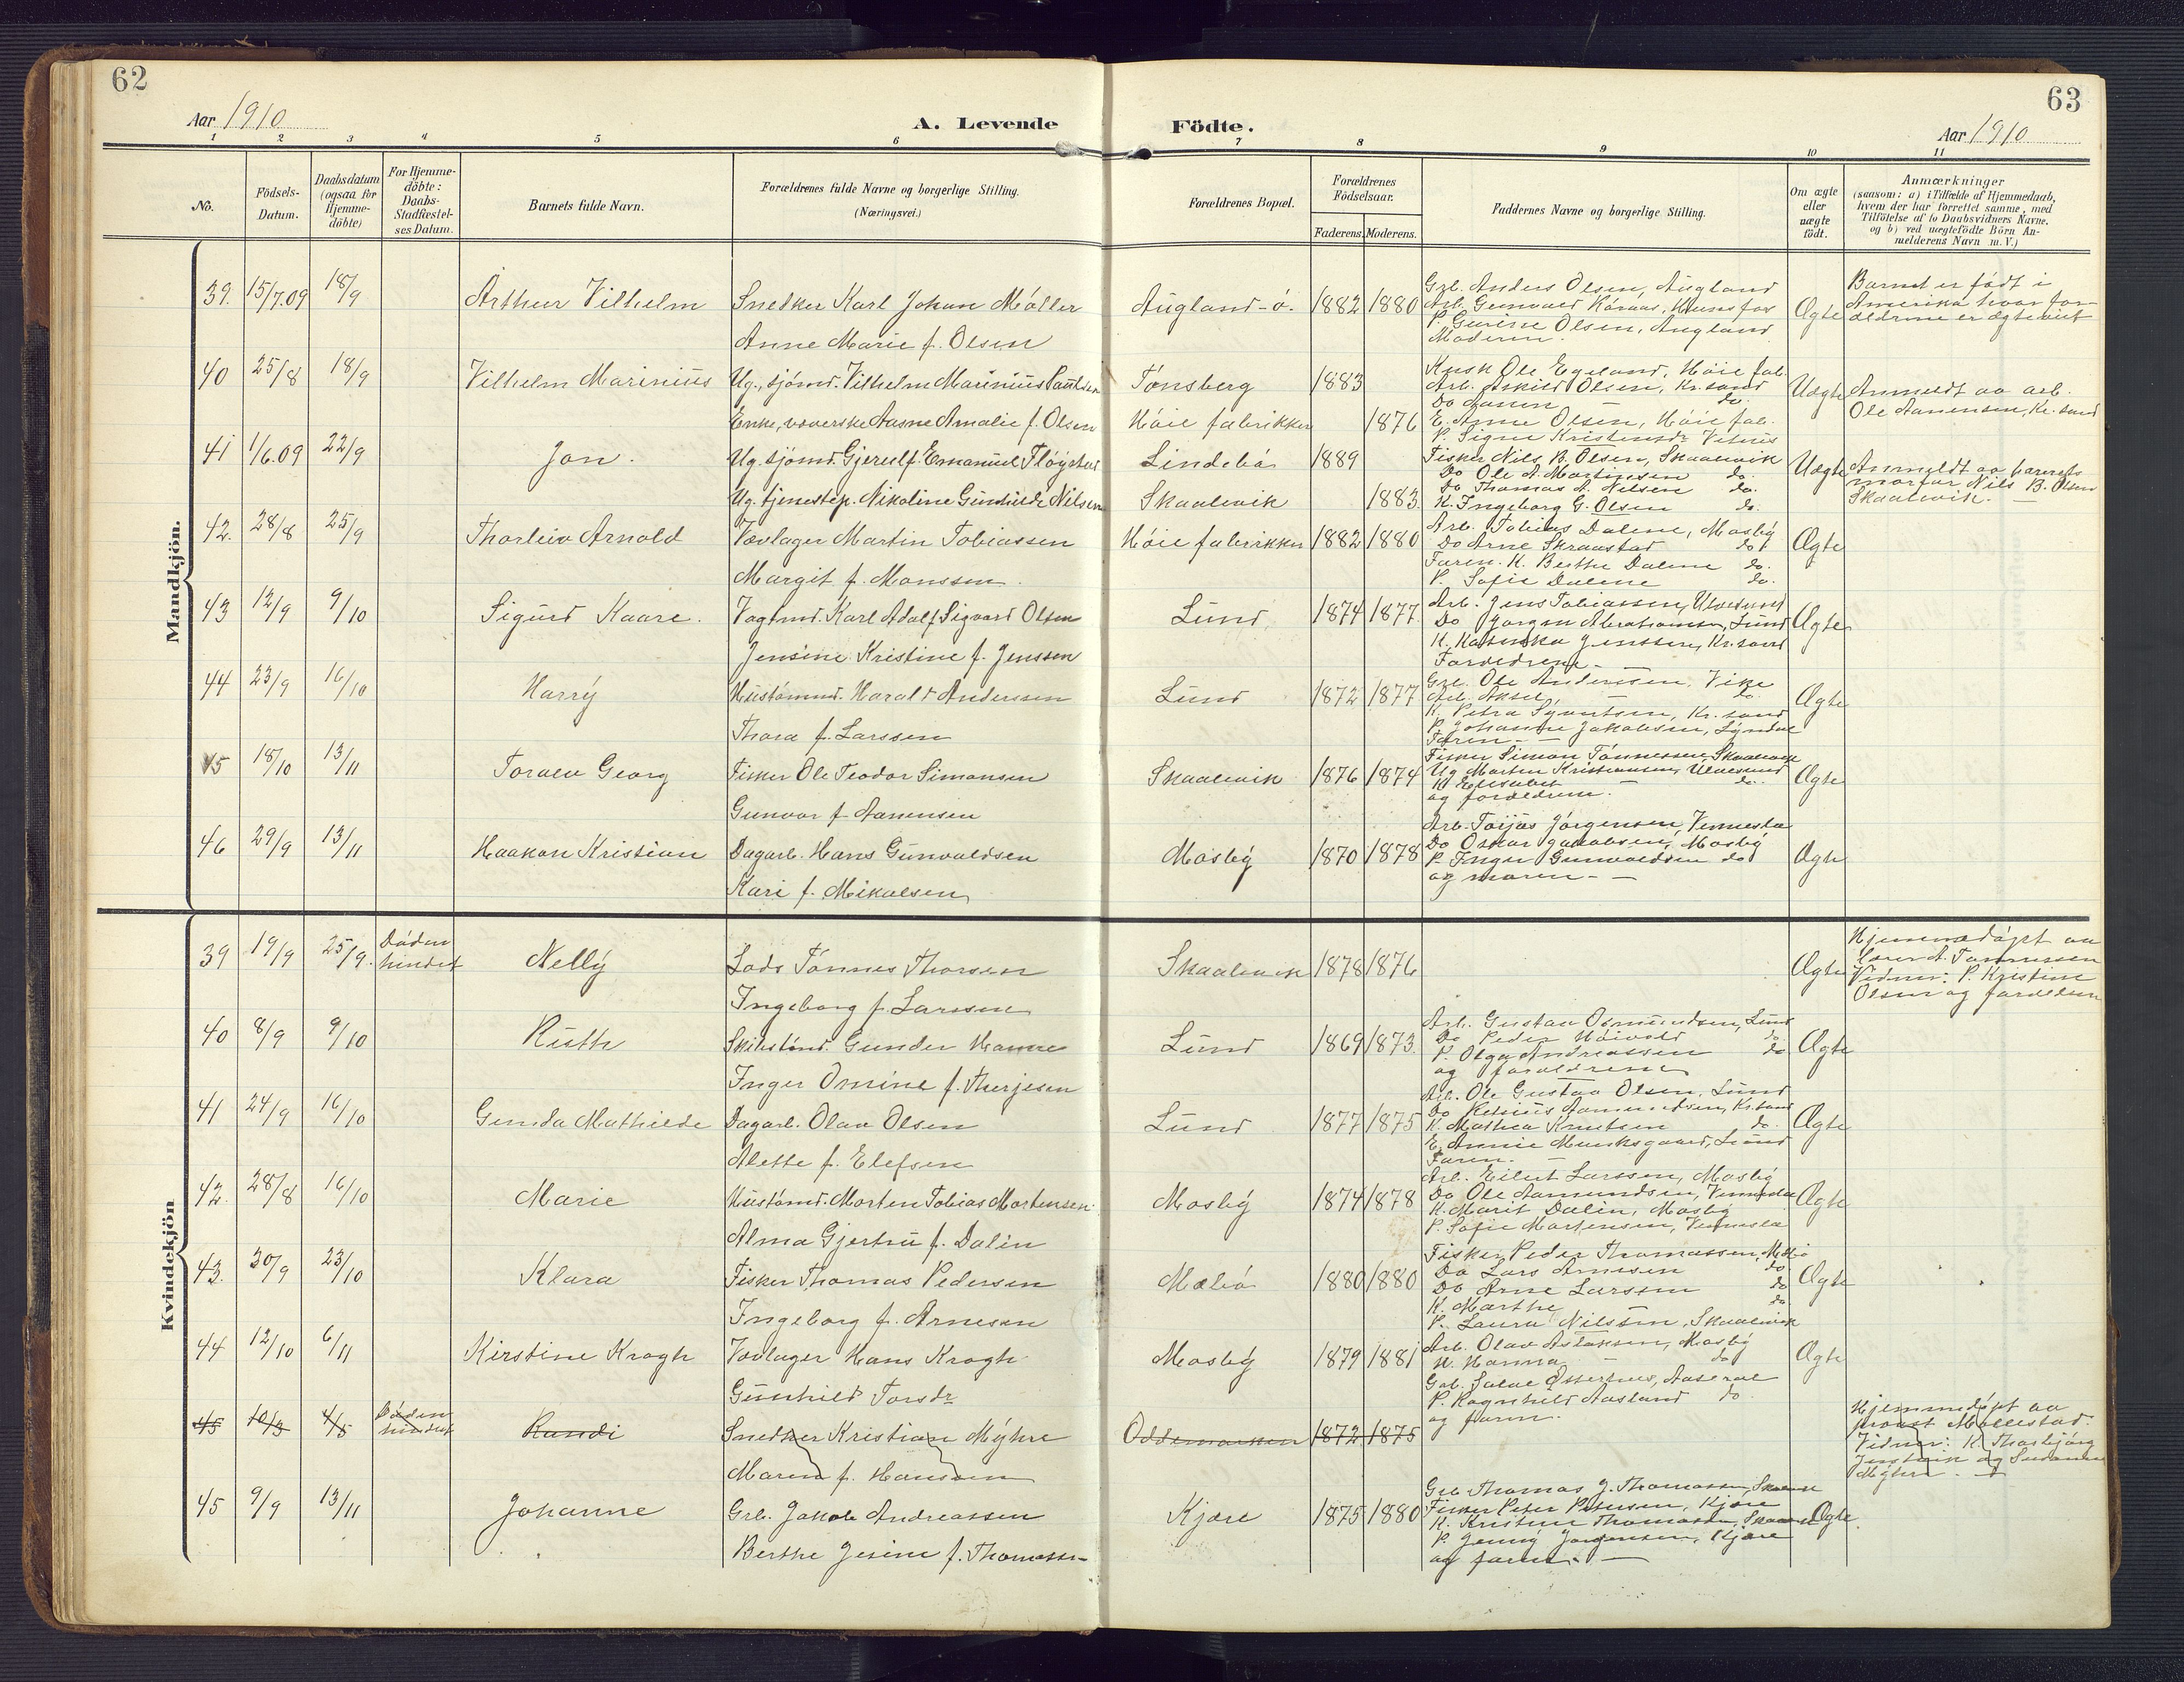 62
63
Aar 1910
A. Levende Födte.
Aar 1910
1 2 3 4 5 6 7 8 9 10 11
No.
Födsels-Datum.
Daabsdatum (ogsaa for Hjemme-döbte)
For Hjemme-döbte: Daabs-Stadfæstel-ses Datum.
Barnets fulde Navn.
Forældrenes fulde Navne og borgerlige Stilling.
(Næringsvei.)
Forældrenes Bopæl.
Forældrenes Födselsaar.
Faderens. Moderens.
Faddernes Navne og borgerlige Stilling.
Om ægte eller uægte födt.
Anmærkninger
(saasom: a) i Tilfælde af Hjemmedaab,
hvem der har forrettet samme, med
Tilföielse af to Daabsvidners Navne.
og b) ved uægtefödte Börn An-
melderens Navn m. V.)
Mandkjön.
39. 15/7.09 18/9 Arthur Vilhelm Snedker Karl Johan Möller Augland-ö. 1882 1880 Ægte
Anne Marie f. Olsen
Grb. Anders Olsen, Augland
Arb. Gunvald Råraas, Hunsfos
P. Gurine Olsen, Augland
Moderen.
Barnet er født i
Amerika hvor for-
ældrene er ægteviet
40 25/8 18/9 Vilhelm Marinius Ug., sjömd. Vilhelm Marinius Paulsen Tönsberg 1883 Uægte
Enke, væverske Aasne Amalie f. Olsen Höie fabrikker 1876
Kusk Ole Egeland, Höie fab.
Arb. Askild Olsen, Kr.sand
Do Aanen — do.
E. Anne Olsen, Höie fab.
P. Signe Kristensdr
Anmeldt av arb.
Ole Aanensen, Kr.sand
41 1/6.09 22/9 Jon. Ug. sjömd. Gjerulf Emanuel Flöystad Lindebö 1889 Uægte
Ug. tjenestep. Nikoline Gunhilde Nilsen Skaalevik 1883
Fisker Nils B. Olsen, Skaalevik
Do Ole A. Martinsen do.
Do Thomas A. Nilsen do.
K. Ingeborg G. Olsen do.
Anmeldt av barnets
morfar Nils B. Olsen
Skaalevik. —
42. 28/8 25/9 Thorleiv Arnold Vævlager Martin Tobiassen Höie fabrikker 1882 1880 Ægte
Margit f. Monssen.
Arb. Tobias Dalene, Mosby
Do Arne Skraastad do.
Faren. K. Berthe Dalene do.
P. Sofie Dalene do.
43 12/9 9/10 Sigurd Kaare. Vogtmd. Karl Adolf Sigvard Olsen Lund 1874 1877 Ægte
Jensine Kristine f. Jenssen
Arb. Jens Tobiassen, Ulvesund
Do Jörgen Abrahamsen, Lund
K. Katinka Jenssen, Kr.sand
Forældrene —
44 23/9 16/10 Harry Hustömmd. Harald Andersen Lund 1872 1877 Ægte
Thora f. Larssen
Grb. Ole Andersen, Vike
Arb. Aksel — do.
K. Petra Syvertsen, Kr.sand
P. Johanne Jakobsen, Lyndal
Faren —
45 18/10 13/11 Toralv Georg Fisker Ole Teodor Simonsen Skaalevik 1876 1874 Ægte
Gunvor f. Aanensen
Fisker Simon Tönnessen, Skaalevik
Ug. Morten Kristiansen, Ulvesund
K. Elisabet — do.
og forældrene.
46 29/9 13/11 Haakon Kristian Dagarb. Hans Gunvaldsen Mosby 1870 1878 Ægte
Kari f. Mikalsen
Arb. Toijus Jörgensen, Vennesla
Do Oskar Jakobsen, Mosby
P. Inger Gunvaldsen do
og moren —
Kvindekjön
39 19/9 25/9. Döden hindret Nelly Lods Tönnes Thorsen Skaalevik 1878 1876 Ægte
Ingeborg f. Larssen
Hjemmedöpt av
lærer A. Tönnessen
Vidner: P. Kristine
Olsen og forældrene
40 8/9 9/10 Ruth Skibstömd. Gunder Hamre Lund 1869 1873 Ægte
Inger Omine f. Therjesen
Arb. Gustav Osmundsen, Lund
Do Peder Höivold do.
P. Olga Andreassen do
og forældrene
41 24/9 16/10 Gunda Mathilde Dagarb. Olav Olsen Lund 1877 1875 Ægte
Alette f. Elefsen
Arb. Ole Gustav Olsen, Lund
Do Aamundsen, Kr.sand
K. Mathea Knutsen do.
E. Annie Munksgaard, Lund
Faren. —
42. 28/8 16/10 Marie Hustömd. Morten Tobias Mortensen Mosby 1874 1878 Ægte
Alma Gjertru f. Dalin
Arb. Eilert Larssen, Mosby
Do Ole Aamundsen, Vennesla
K. Marit Dalin, Mosby
P. Sofie Mortensen, Vennesla
43. 30/9 23/10 Klara Fisker Thomas Pedersen Mebö 1880 1880 Ægte
Ingeborg f. Arnesen
Fisker Peder Thomassen, Mebö
Do Lars Arnesen do
Do Arne Larssen do
K. Marthe do
P. Laura Nilssen, Skaalevik
44 12/10 6/11 Kirstine Krogh Vævlager Hans Krogh Mosby 1879 1881 Ægte
Gunhild Torsdr
Arb. Olav Aslaksen, Mosby
K. Hanna — do
Grb. Salve Össerhus, Aaseral
P. Ragnhild Aasland do.
og faren.
45 10/3 4/5 Döden hindret Randi Snedker Kristian Myhre Oddemarken 1872 1875
Maren f. Hanssen
Hjemmedöpt av
provst Möllestad.
Vidner: K. Thorbjörg
Justvik og Susanne
Myhre —
45 9/9 13/11 Johanne Grb. Jakob Andreassen Kjære 1875 1880 Ægte.
Berthe Jesine f. Thomassn
Grb Thomas J. Thomassen, Skaalevik
Fisker Peter Petersen, Kjære
K. Kristine Thomassen, Skaalevik
P. Jenny Jörgensen, Kjære
og faren. —